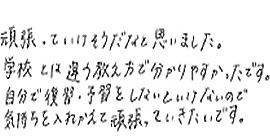 頑張っていけそうだなと思いました。
学校とは違う教え方で分かりやすかったです。
自分で復習・予習をしないといけないので
気持ちを入れかえて頑張っていきたいです。